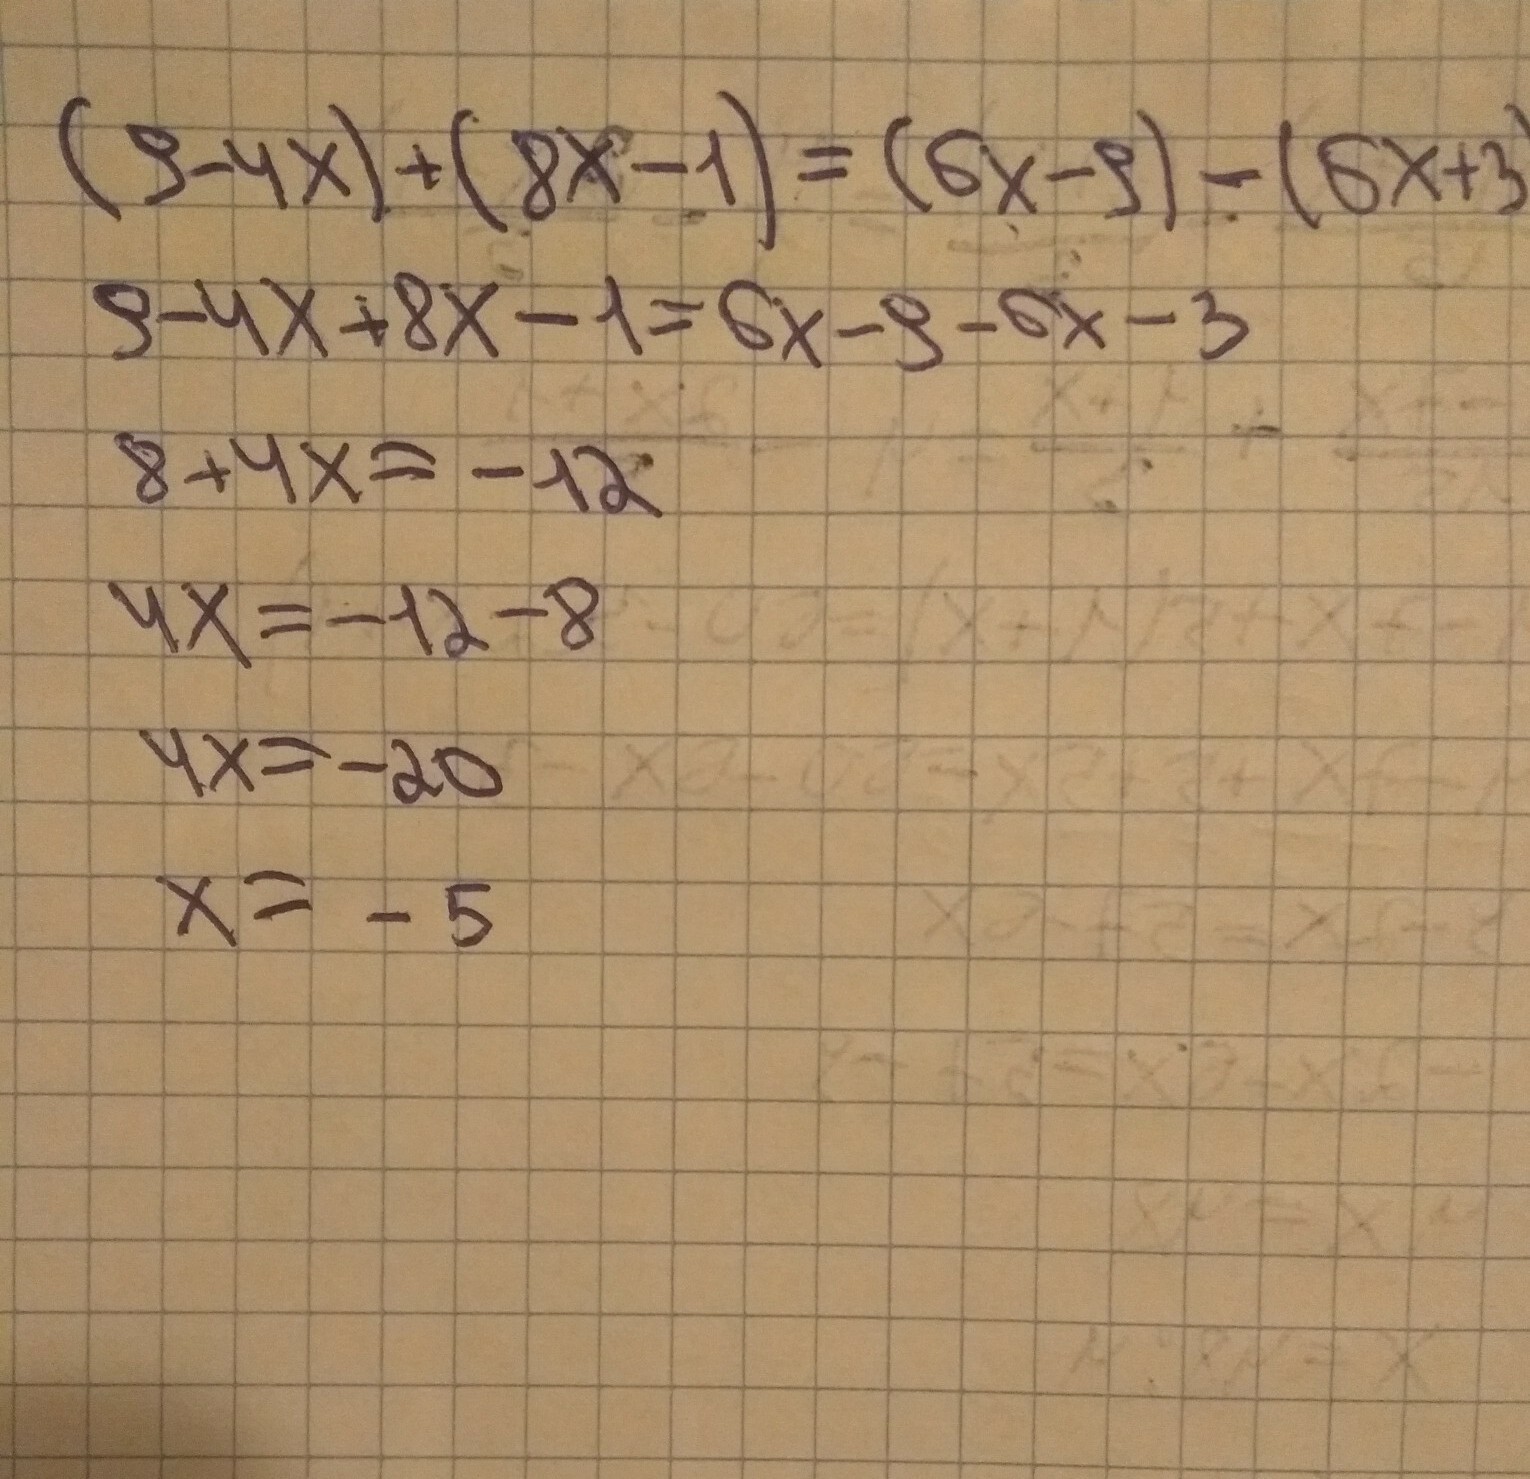 (9-4x)+(8x-1)=(6x-9)-(6x+3)
9-4x+8x-1=6x-9-6x-3
8+4x=-12
4x=-12-8
4x=-20
x=-5